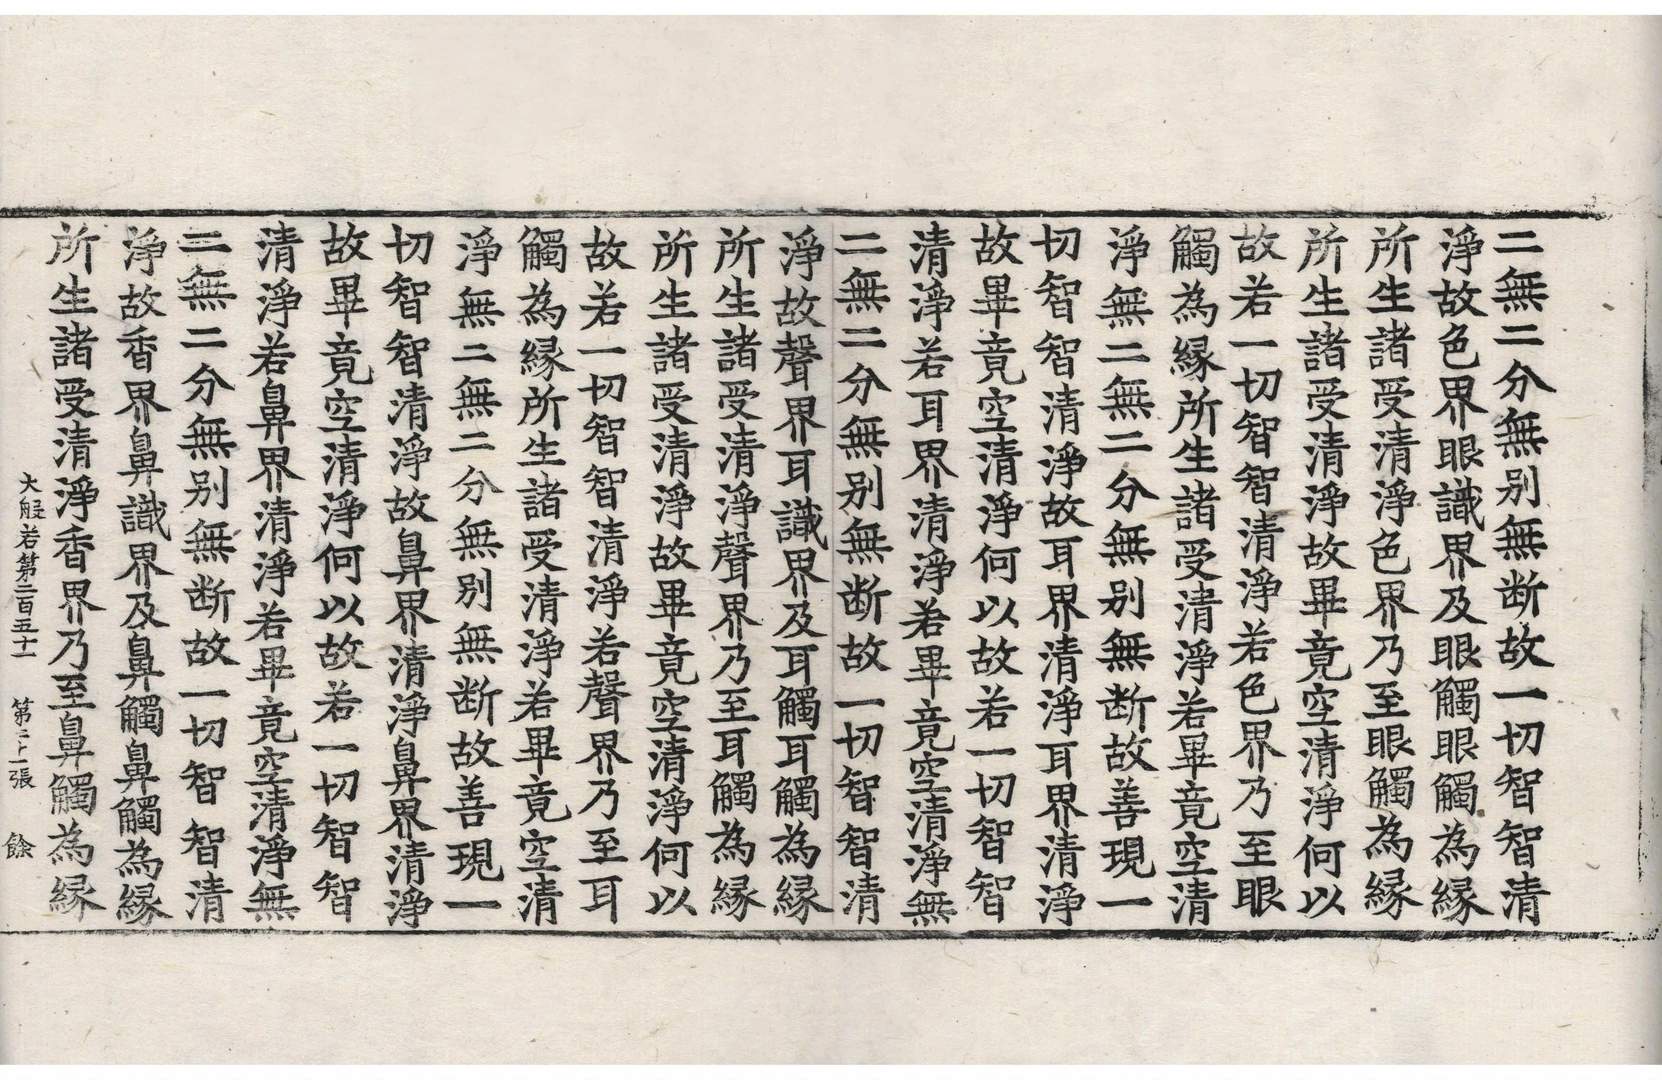 二無二分無別無断故一切智智清
淨故色界眼識界及眼觸眼觸為縁
所生諸受清淨色界乃至眼觸為縁
所生諸受清淨故畢竟空清淨何以
故若一切智智清淨若色界乃至眼
觸為縁所生諸受清淨若畢竟空清
淨無二無二分無別無断故善現一
切智智清淨故耳界清淨耳界清淨
故畢竟空清淨何以故若一切智智
清淨若耳界清淨若畢竟空清淨無
二無二分無別無断故一切智智清
淨故聲界耳識界及耳觸耳觸為縁
所生諸受清淨聲界乃至耳觸為縁
所生諸受清淨故畢竟空清淨何以
故若一切智智清淨若聲界乃至耳
觸為縁所生諸受清淨若畢竟空清
淨無二無二分無別無断故善現一
切智智清淨故鼻界清淨鼻界清淨
故畢竟空清淨何以故若一切智智
清淨若鼻界清淨若畢竟空清淨無
二無二分無別無断故一切智智清
淨故香界鼻識界及鼻觸鼻觸為縁
所生諸受清淨香界乃至鼻觸為縁
大般若第二百五十一 第二十一張 餘